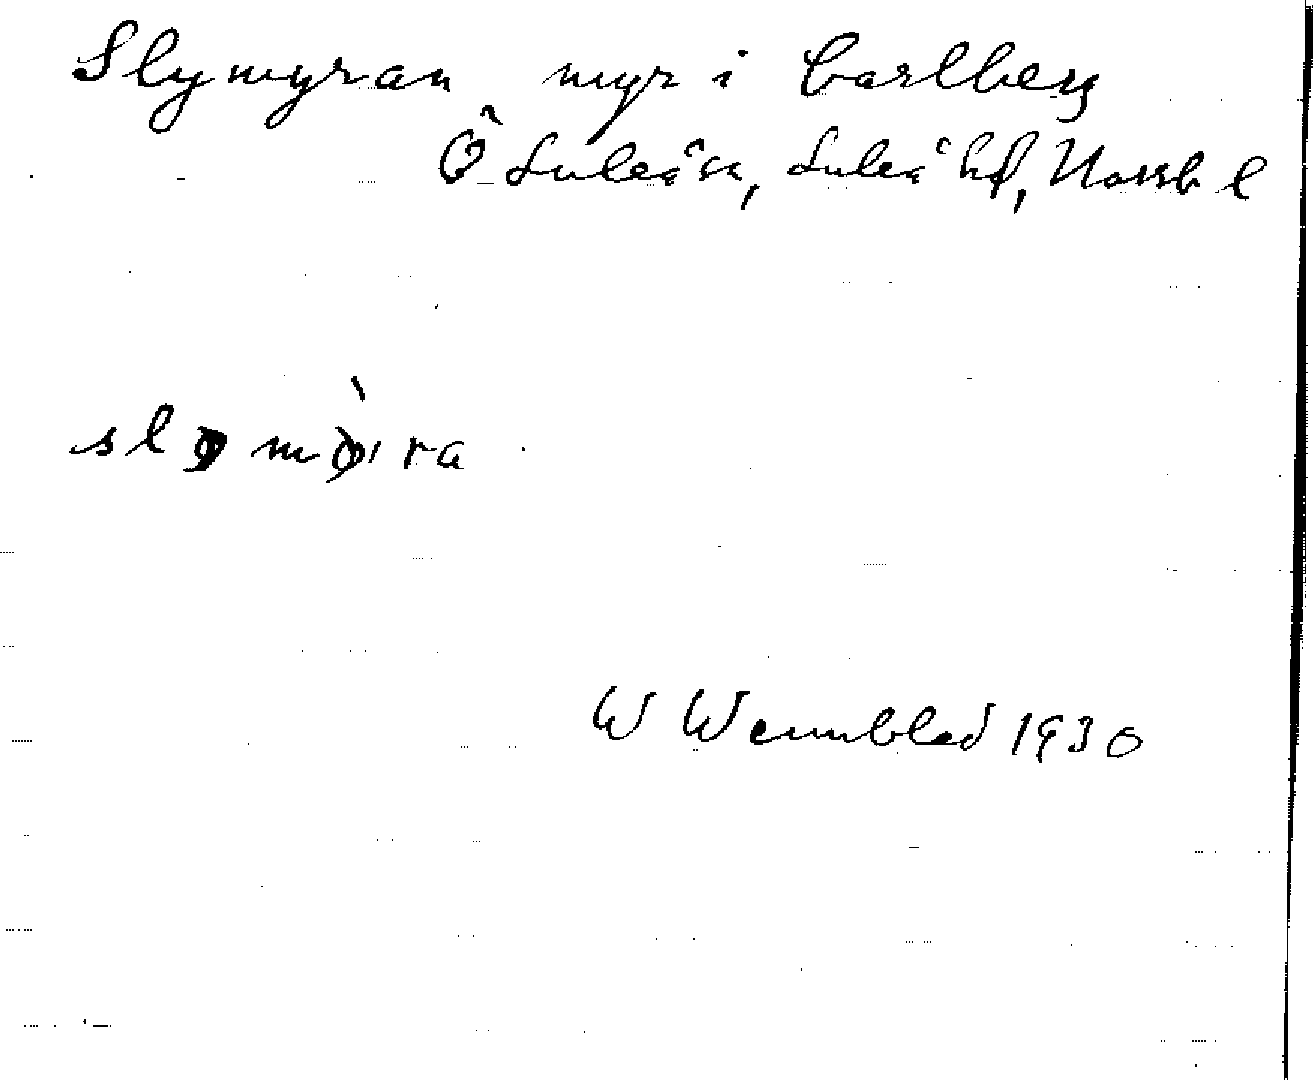 Slymyran myr i Carlberg
Ö Luleå sn, Luleå hd, Norrb l
slømø̀ra
W Wennblad 1930